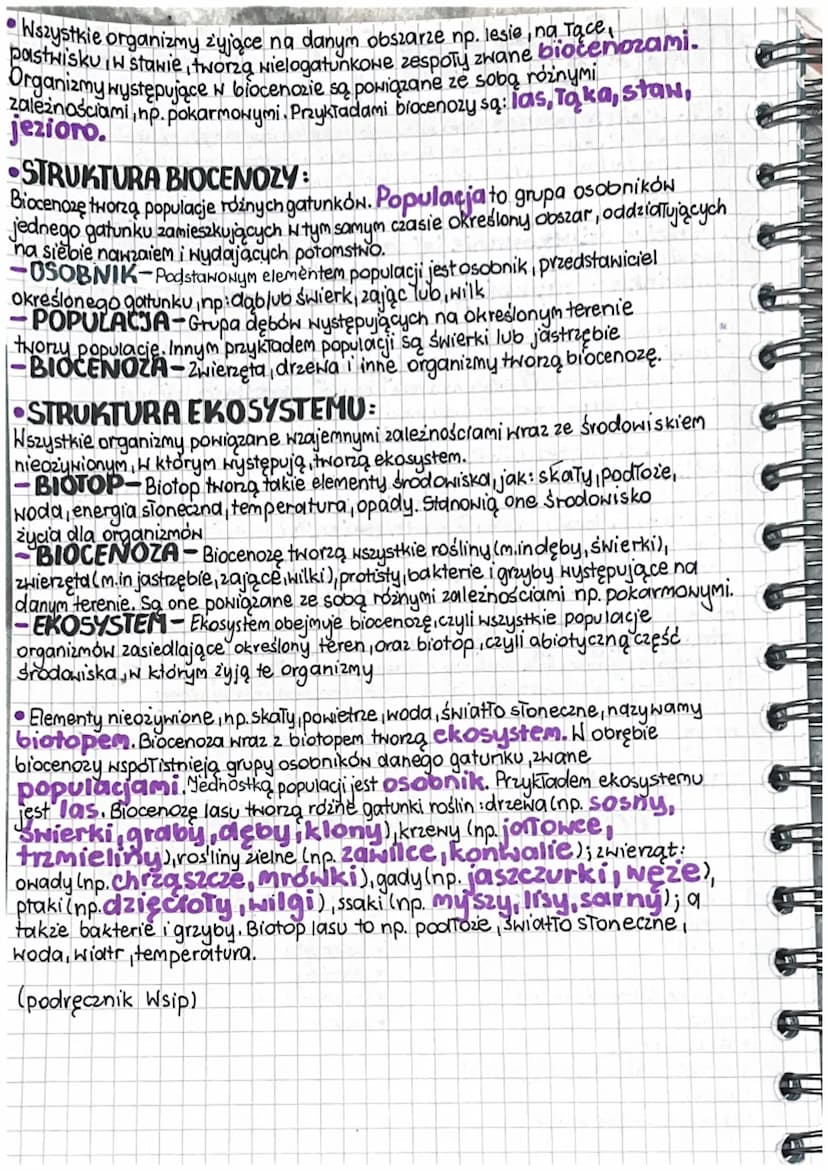 • Wszystkie organizmy żyjące na danym obszarze np. lesie, na łące,
pastwisku, w stawie, tworzą wielogatunkowe zespoły zwane biocenozami.
Organizmy występujące w biocenozie są powiązane ze sobą różnymi
zależnościami, np. pokarmowymi. Przykładami biocenozy są: las, łąka, staw,
jezioro.
• STRUKTURA BIOCENOZY:
Biocenozę tworzą populacje różnych gatunków. Populacja to grupa osobników
jednego gatunku zamieszkujących w tym samym czasie określony obszar, oddziałujących
na siebie nawzajem i wydających potomstwo.
- OSOBNIK - Podstawowym elementem populacji jest osobnik, przedstawiciel
określonego gatunku, np: dąb lub świerk, zając lub, wilk
- POPULACJA - Grupa dębów występujących na określonym terenie
tworzy populację. Innym przykładem populacji są świerki lub jastrzębie
- BIOCENOZA - Zwierzęta, drzewa i inne organizmy tworzą biocenozę.
• STRUKTURA EKOSYSTEMU:
Wszystkie organizmy powiązane wzajemnymi zależnościami wraz ze środowiskiem
nieożywionym, w którym występują, tworzą ekosystem.
- BIOTOP - Biotop tworzą takie elementy środowiska, jak: skały, podłoże,
woda, energia słoneczna, temperatura, opady. Stanowią one środowisko
życia dla organizmów
- BIOCENOZA - Biocenozę tworzą wszystkie rośliny (m.in dęby, świerki),
zwierzęta (m.in jastrzębie, zające, wilki), protisty, bakterie i grzyby występujące na
danym terenie. Są one powiązane ze sobą różnymi zależnościami np. pokarmowymi.
- EKOSYSTEM - Ekosystem obejmuje biocenozę, czyli wszystkie populacje
organizmów zasiedlające określony teren, oraz biotop, czyli abiotyczną część
środowiska, w którym żyją te organizmy
• Elementy nieożywione, np. skały, powietrze, woda, światło słoneczne, nazywamy
biotopem. Biocenoza wraz z biotopem tworzą ekosystem. W obrębie
biocenozy współistnieją grupy osobników danego gatunku, zwane
populacjami. Jednostką populacji jest osobnik. Przykładem ekosystemu
jest las. Biocenozę lasu tworzą różne gatunki roślin: drzewa (np. sosny,
świerki, graby, dęby, klony), krzewy (np. jałowce,
trzmieliny), rośliny zielne (np. zawilce, konwalie); zwierząt:
owady (np. chrząszcze, mrówki), gady (np. jaszczurki, węże),
ptaki (np. dzięcioły, wilgi), ssaki (np. myszy, lisy, sarny); a
także bakterie i grzyby. Biotop lasu to np. podłoże, światło słoneczne,
woda, wiatr, temperatura.
(podręcznik Wsip)